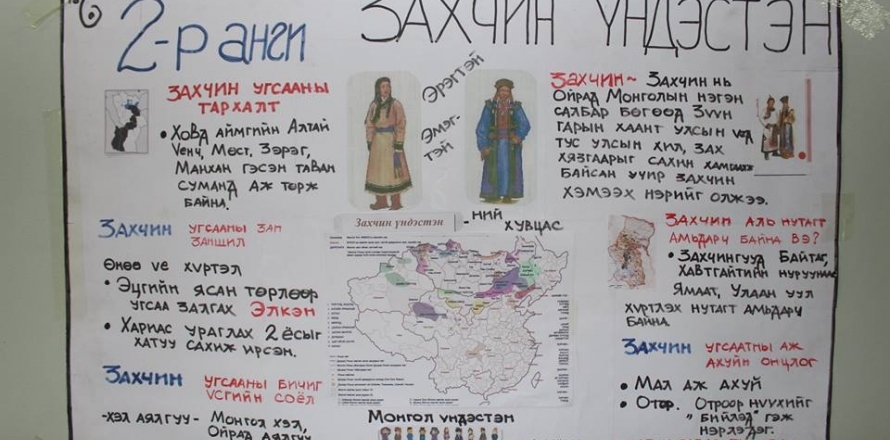 2-р анги
ЗАХЧИН ҮНДЭСТЭН
ЗАХЧИН УГСААНЫ
ТАРХАЛТ
• Ховд аймгийн Алтай
Үенч, Мөст, Зэрэг,
Манхан гэсэн таван
суманд аж төрж
байна.
Эрэгтэй
Эмэг-
тэй
ЗАХЧИН~ Захчин нь
Ойрад Монголын нэгэн
салбар бөгөөд Зүүн
гарын хаант улсын үед
тус улсын хил, зах
хязгаарыг сахин хамгаалж
байсан учир захчин
хэмээх нэрийг олжээ.
Захчин үндэстэн
-ний
хувцас
ЗАХЧИН угсааны зан
заншил
Өнөө үе хүртэл
• Эцгийн ясан төрлөөр
угсаа залгах Элкэн
• Хариас ураглах 2 ёсыг
хатуу сахиж ирсэн.
ЗАХЧИН АЛЬ НУТАГТ
АМЬДАРЧ БАЙНА ВЭ?
• Захчингууд Байтаг,
Хавтгайтийн нуруунаас
Ямаат, Улаан уул
хүртлэх нутагт амьдарч
байна.
ЗАХЧИН угсааны бичиг
үсгийн соёл
-хэл аялгуу- Монгол хэл,
Ойрад аялгуу
Монгол үндэстэн
ЗАХЧИН угсаатны аж
ахуйн онцлог
• Мал аж ахуй
• Отор. Отроор нүүхийг
"Бийлэд" гэж
нэрлэдэг.